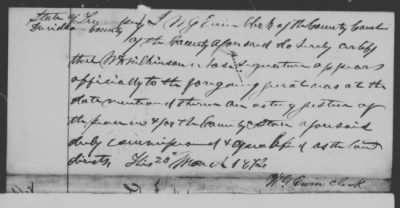 State of Tennessee } I W G Ewin Clerk of the County Court
Davidson County of the County aforesaid do hereby certify
that W Wilkinson whose signature appears
officially to the foregoing jurat was at the
date mentioned therein an acting justice of
the peace in & for the County & State aforesaid
duly commissioned & qualified as the law
directs, This 20 March 18
W G Ewin Clerk